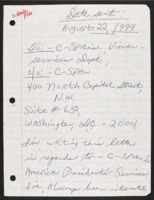 Date sent:
August 22, 1999
To:- C-SPAN's Viewer
Services Dept,
C/o:- C-SPAN
400 North Capitol Street,
N.W.
Suite # 650,
Washington, DC - 20001
for writing this letter
is regards to - C-SPAN's
American Presidents' Series
I've Always been interested